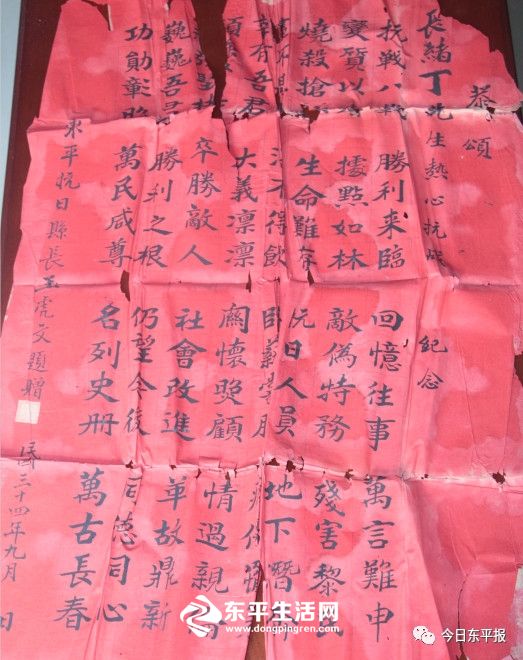 恭頌
長緒丁先生熱心抗 紀念
抗戰八 勝利来臨 回憶往事 萬言難申
據點如林 敵偽特務 殘害黎
燒殺搶 生命難存 抗日人員 地下潛
不得飲 臥薪
有吾君 大義凛凛 關懷照顧 情過親
卒勝敵人 社會改進 革故鼎新
巍巍吾 勝利之根 仍望今後 同德同心
功勛彰 萬民咸尊 名列史册 萬古長春
東平抗日縣長王虎文題贈 民三十四年九月 日
东平生活网
www.dongpingren.com
今日东平报